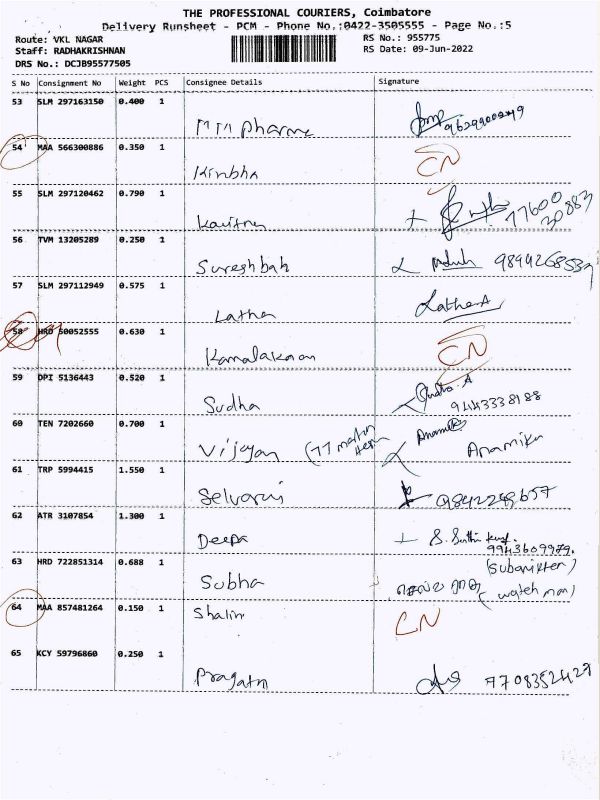 THE PROFESSIONAL COURIERS, Coimbatore
Delivery Runsheet - PCM - Phone No.:0422-3505555 - Page No.:5
Route: VKL NAGAR RS No.: 955775
Staff: RADHAKRISHNAN RS Date: 09-Jun-2022
DRS No.: DCJB95577505
S No Consignment No Weight PCS Consignee Details Signature
53 SLM 297163150 0.400 1
MTM pharma
54 MAA 566300886 0.350 1 CN
Kinbha
55 SLM 297120462 0.790 1 77600
Kavitha 30883
56 TVM 13205289 0.250 1
Sureshbab 9894268537
57 SLM 297112949 0.575 1
Latha Latha A
58 HRD 50052555 0.630 1 CN
Kamalakanan
59 DPI 5136443 0.520 1
Sudha 9443338188
60 TEN 7202660 0.700 1
Vijayan (77 Anamika
61 TRP 5994415 1.550 1
Selvarni
62 ATR 3107854 1.300 1
Deepa 9943609979.
63 HRD 722851314 0.688 1
Subha (watch man)
64 MAA 857481264 0.150 1 CN
Shalin
65 KCY 59796860 0.250 1
Pragatn 7708352427